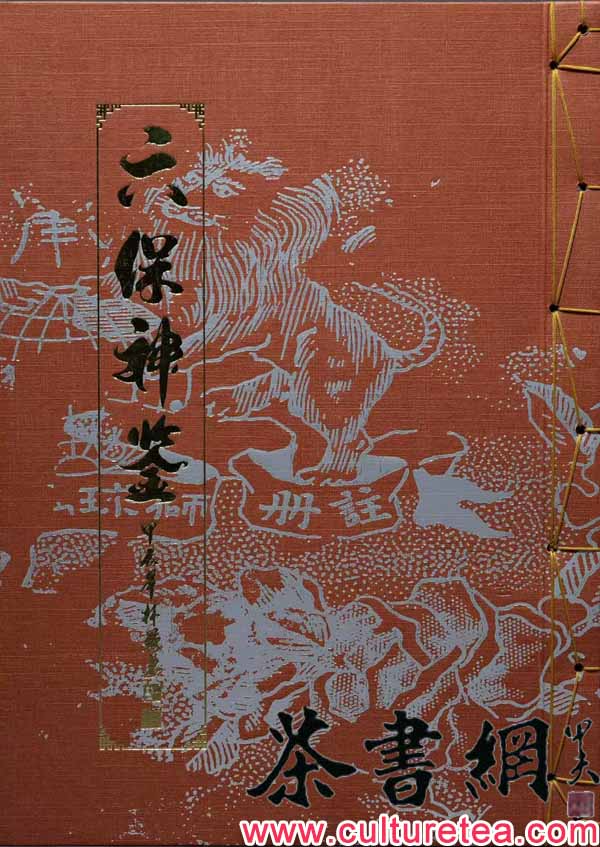 六保神鉴
獅球
註册
茶書網
www.culturetea.com